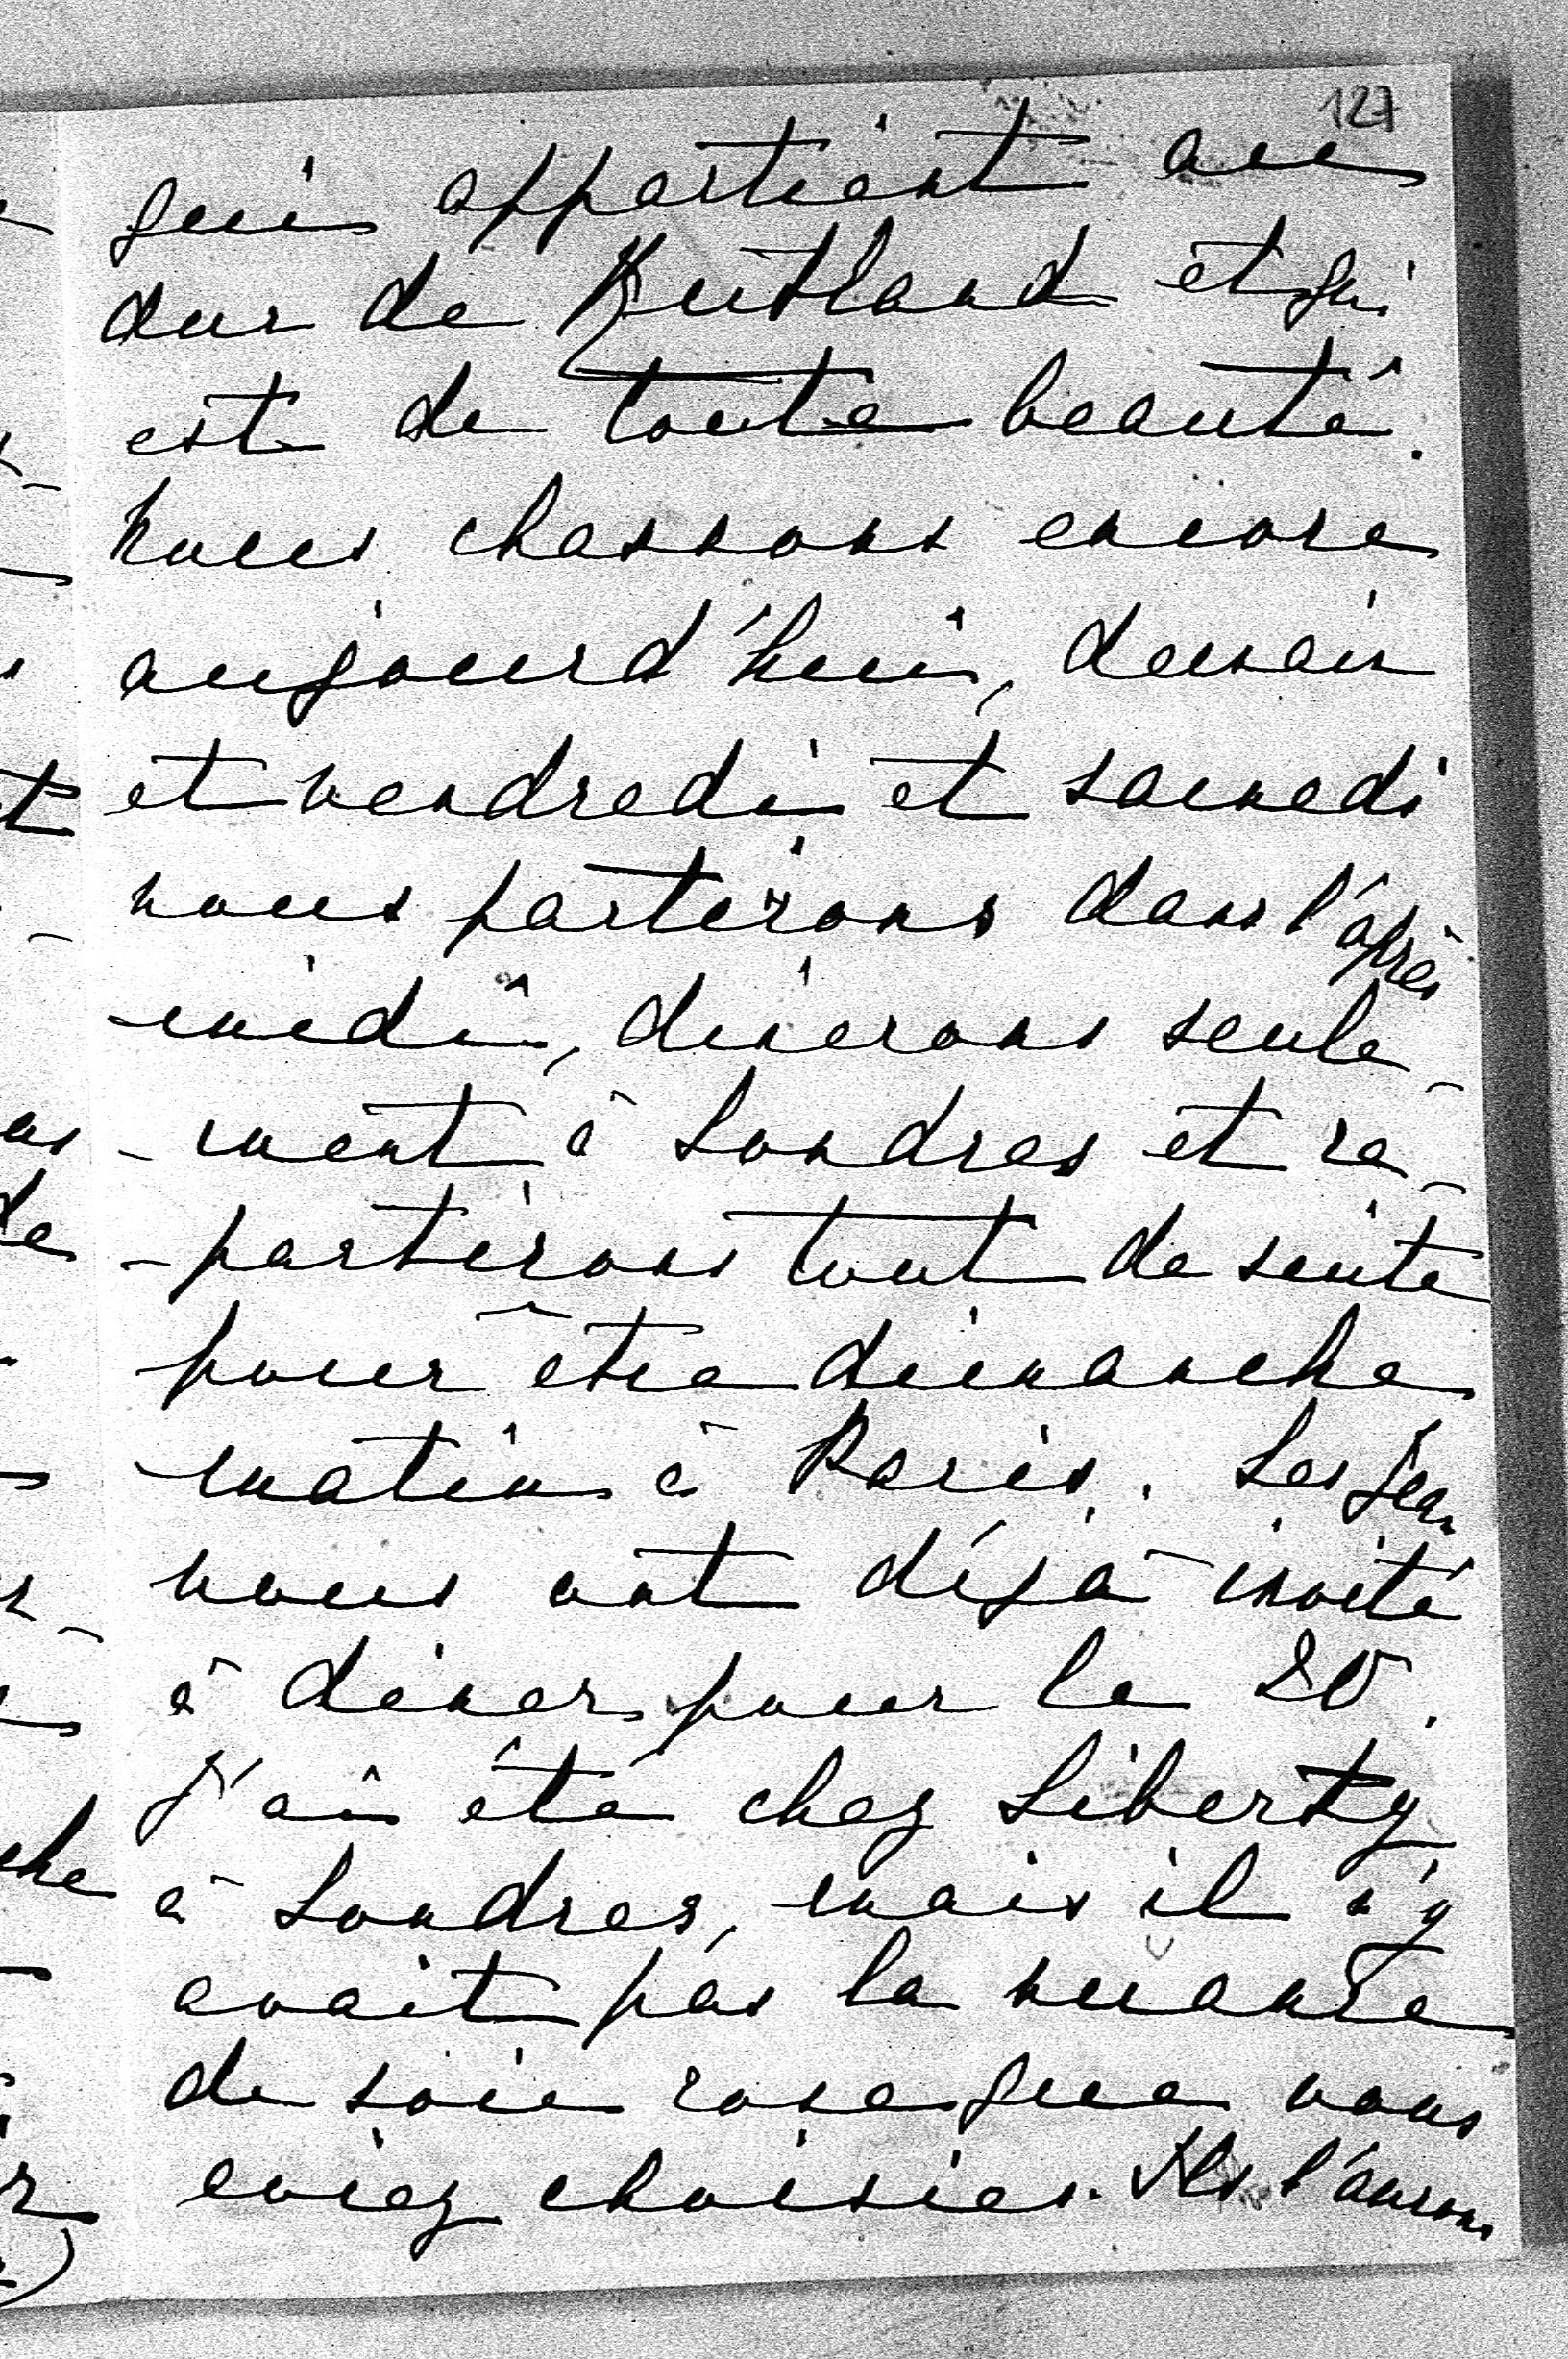 127
qui appartient au
duc de Rutland et qui
est de toute beauté.
Nous chassons encore
aujourd'hui, demain
et vendredi et samedi
nous partirons dans l'après
midi, dinerons seule-
-ment à Londres et re-
-partirons tout de suite
pour être dimanche
matin à Paris. Les Jean
nous ont déjà invité
à diner pour le 20.
J'ai été chez Liberty
à Londres, mais il n'y
avait pas la nuance
de soie rose que vous
aviez choisies. Ils l'aurons